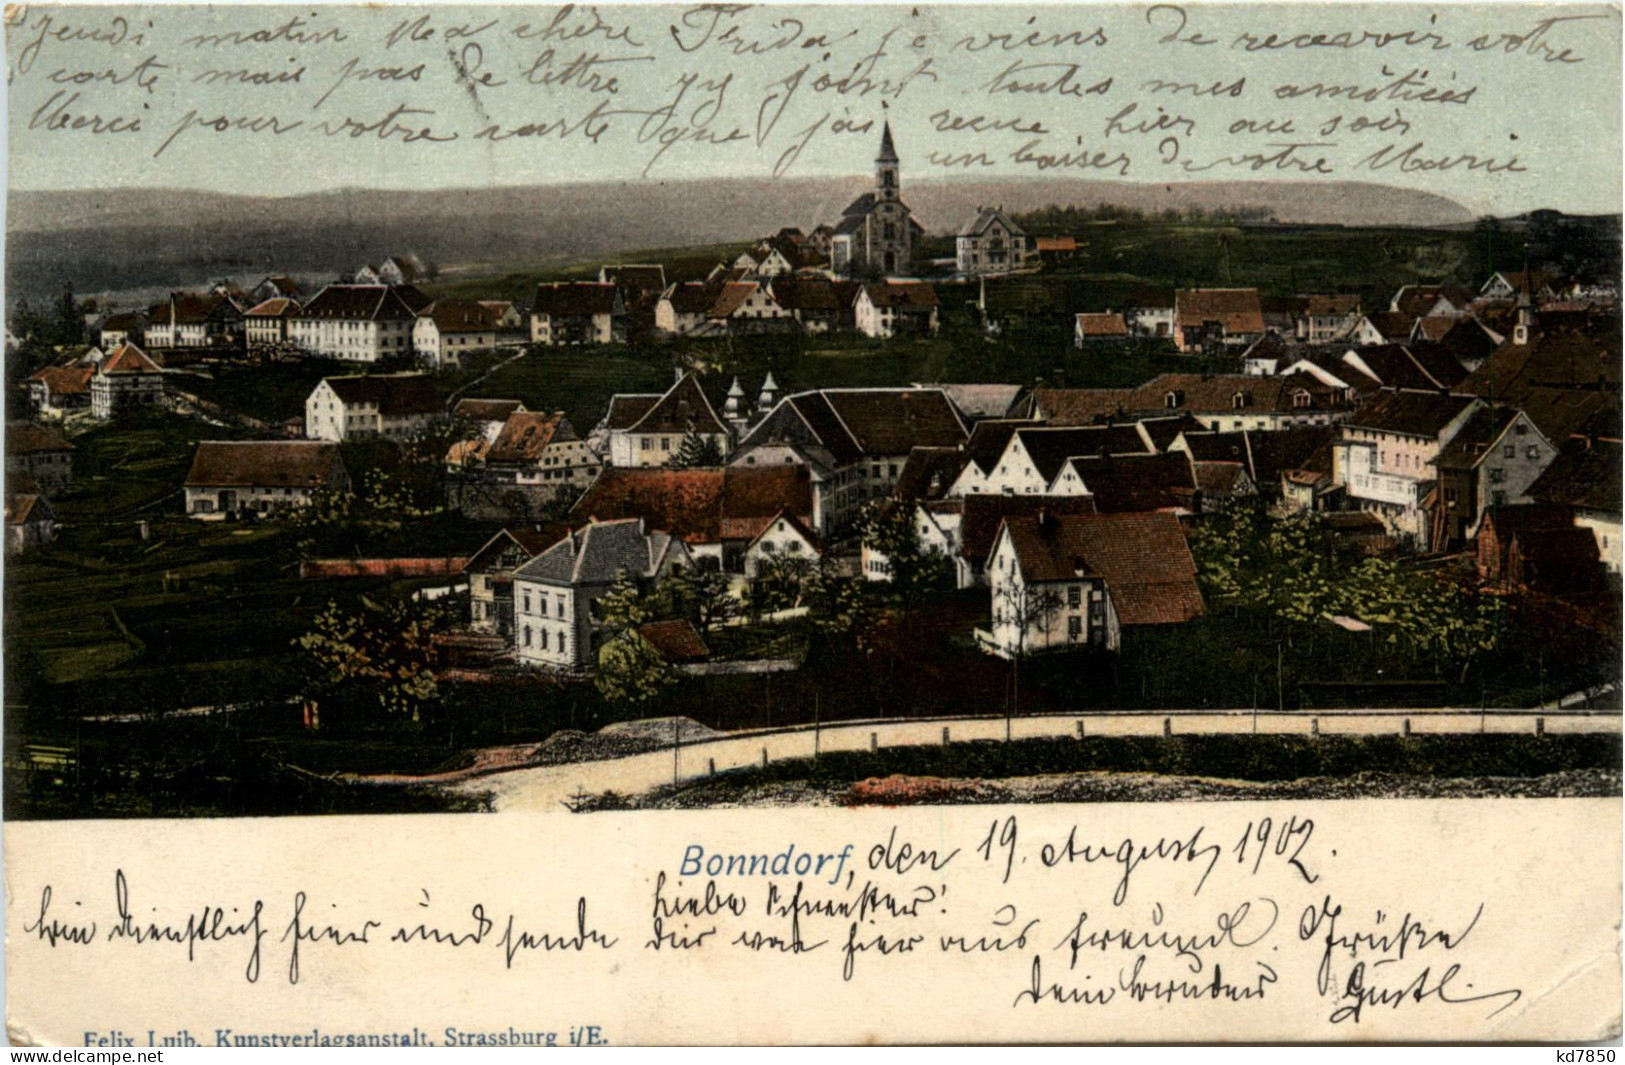 Jeudi matin Ma chère Frida je viens de recevoir votre
carte mais pas de lettre j'y joint toutes mes amitiées
Merci pour votre carte que j'ai recue, hier au soir
un baiser de votre Marie
Bonndorf, den 19. August, 1902.
Liebe Schwester!
bin dienstlich hier und sende dir von hier aus freundl. Grüße
dein Bruder Gustl.
Felix Luib, Kunstverlagsanstalt, Strassburg i/E.
kd7850